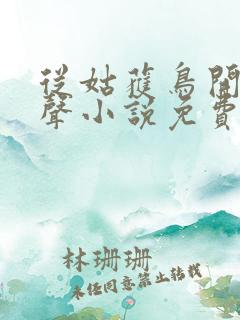 從姑獲鳥開
聲小說免費
林珊珊
未經同意禁止轉載